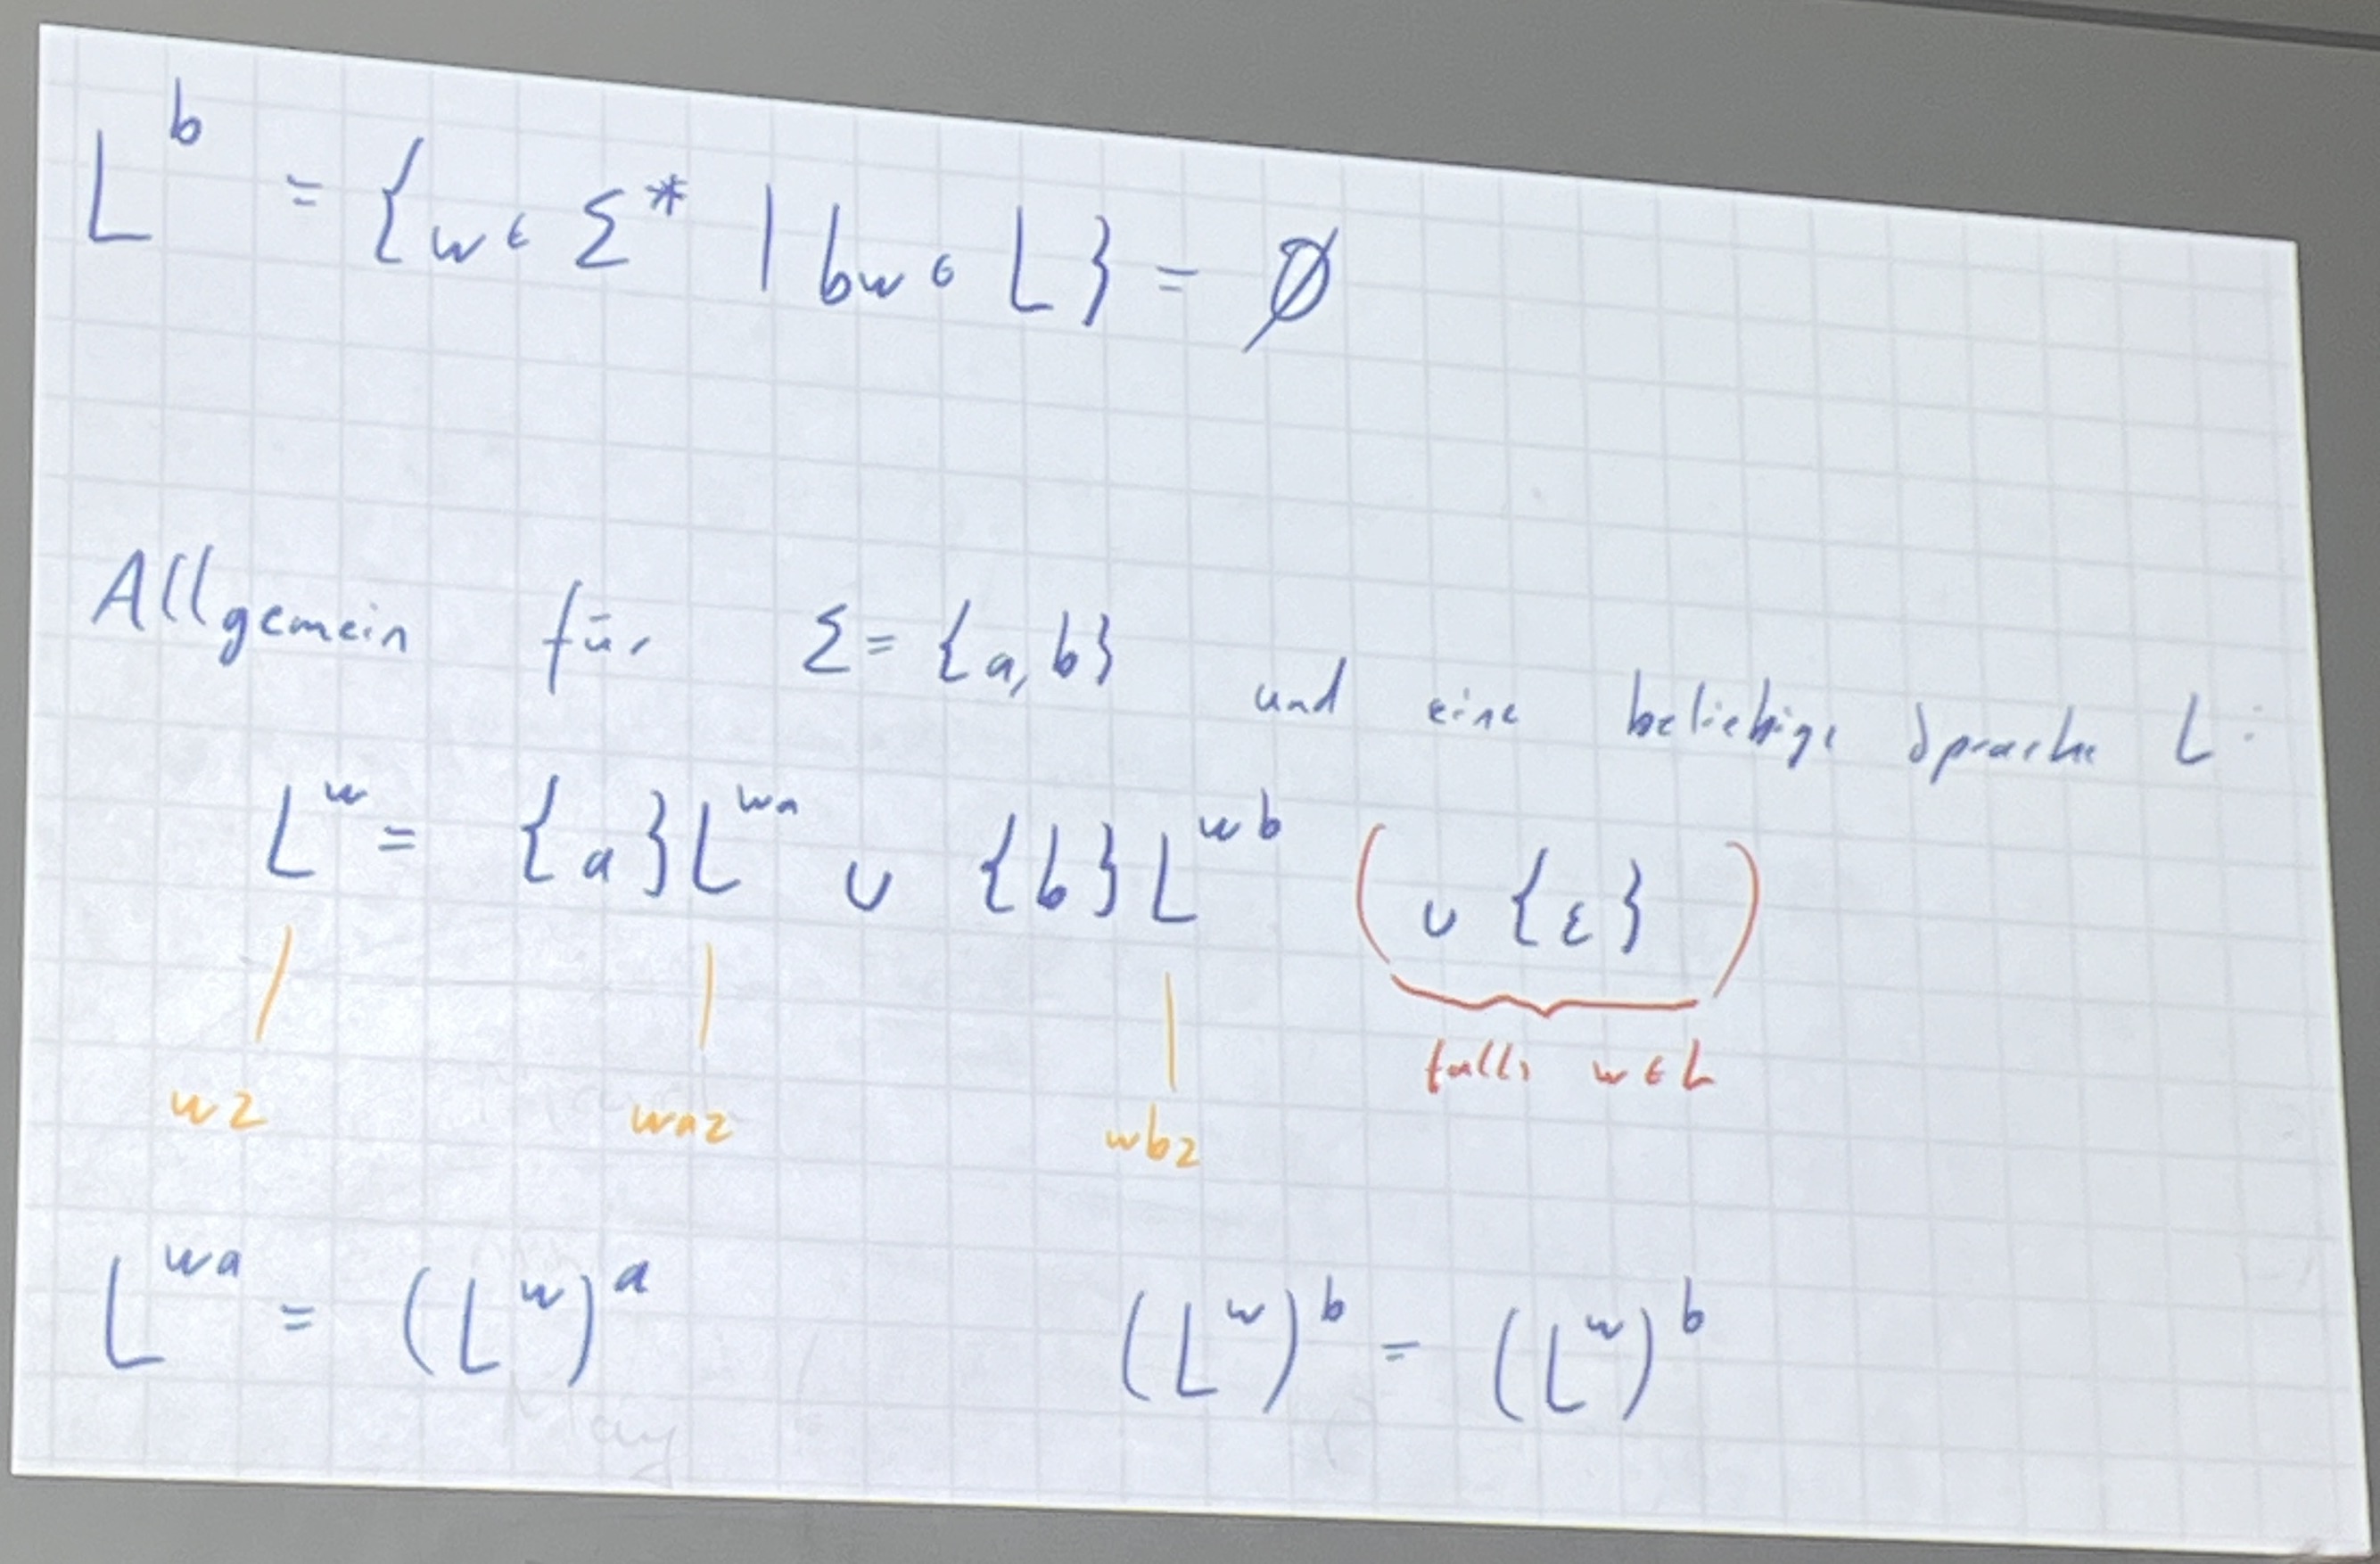 L^b = {w ∈ Σ* | bw ∈ L} = ∅
Allgemein für Σ = {a, b} und eine beliebige Sprache L:
L^w = {a}L^wa ∪ {b}L^wb (∪ {ε})
falls w ∈ L
wz waz wbz
L^wa = (L^w)^a (L^w)^b = (L^w)^b